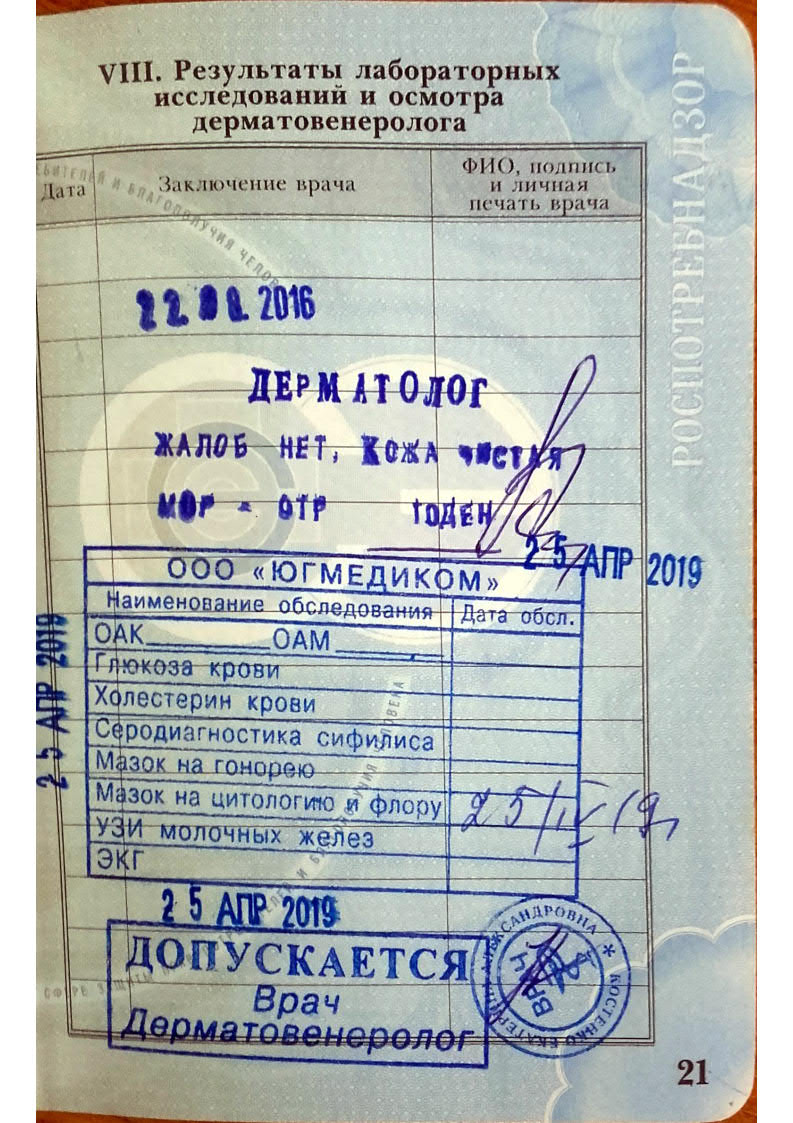 VIII. Результаты лабораторных
исследований и осмотра
дерматовенеролога
Дата
Заключение врача
ФИО, подпись
и личная
печать врача
РОСПОТРЕБНАДЗОР
22. 2016
ДЕРМАТОЛОГ
ЖАЛОБ НЕТ, КОЖА ЧИСТАЯ
МОР - ОТР ГОДЕН
25 АПР 2019
ООО «ЮГМЕДИКОМ»
Наименование обследования Дата обсл.
ОАК________ОАМ_______
Глюкоза крови
Холестерин крови
Серодиагностика сифилиса
Мазок на гонорею
Мазок на цитологию и флору 25/IV 19
УЗИ молочных желез
ЭКГ
25 АПР 2019
25 АПР 2019
ДОПУСКАЕТСЯ
Врач
Дерматовенеролог
КОСТЕНКО ЕКАТЕРИНА АЛЕКСАНДРОВНА *
ВРАЧ
21